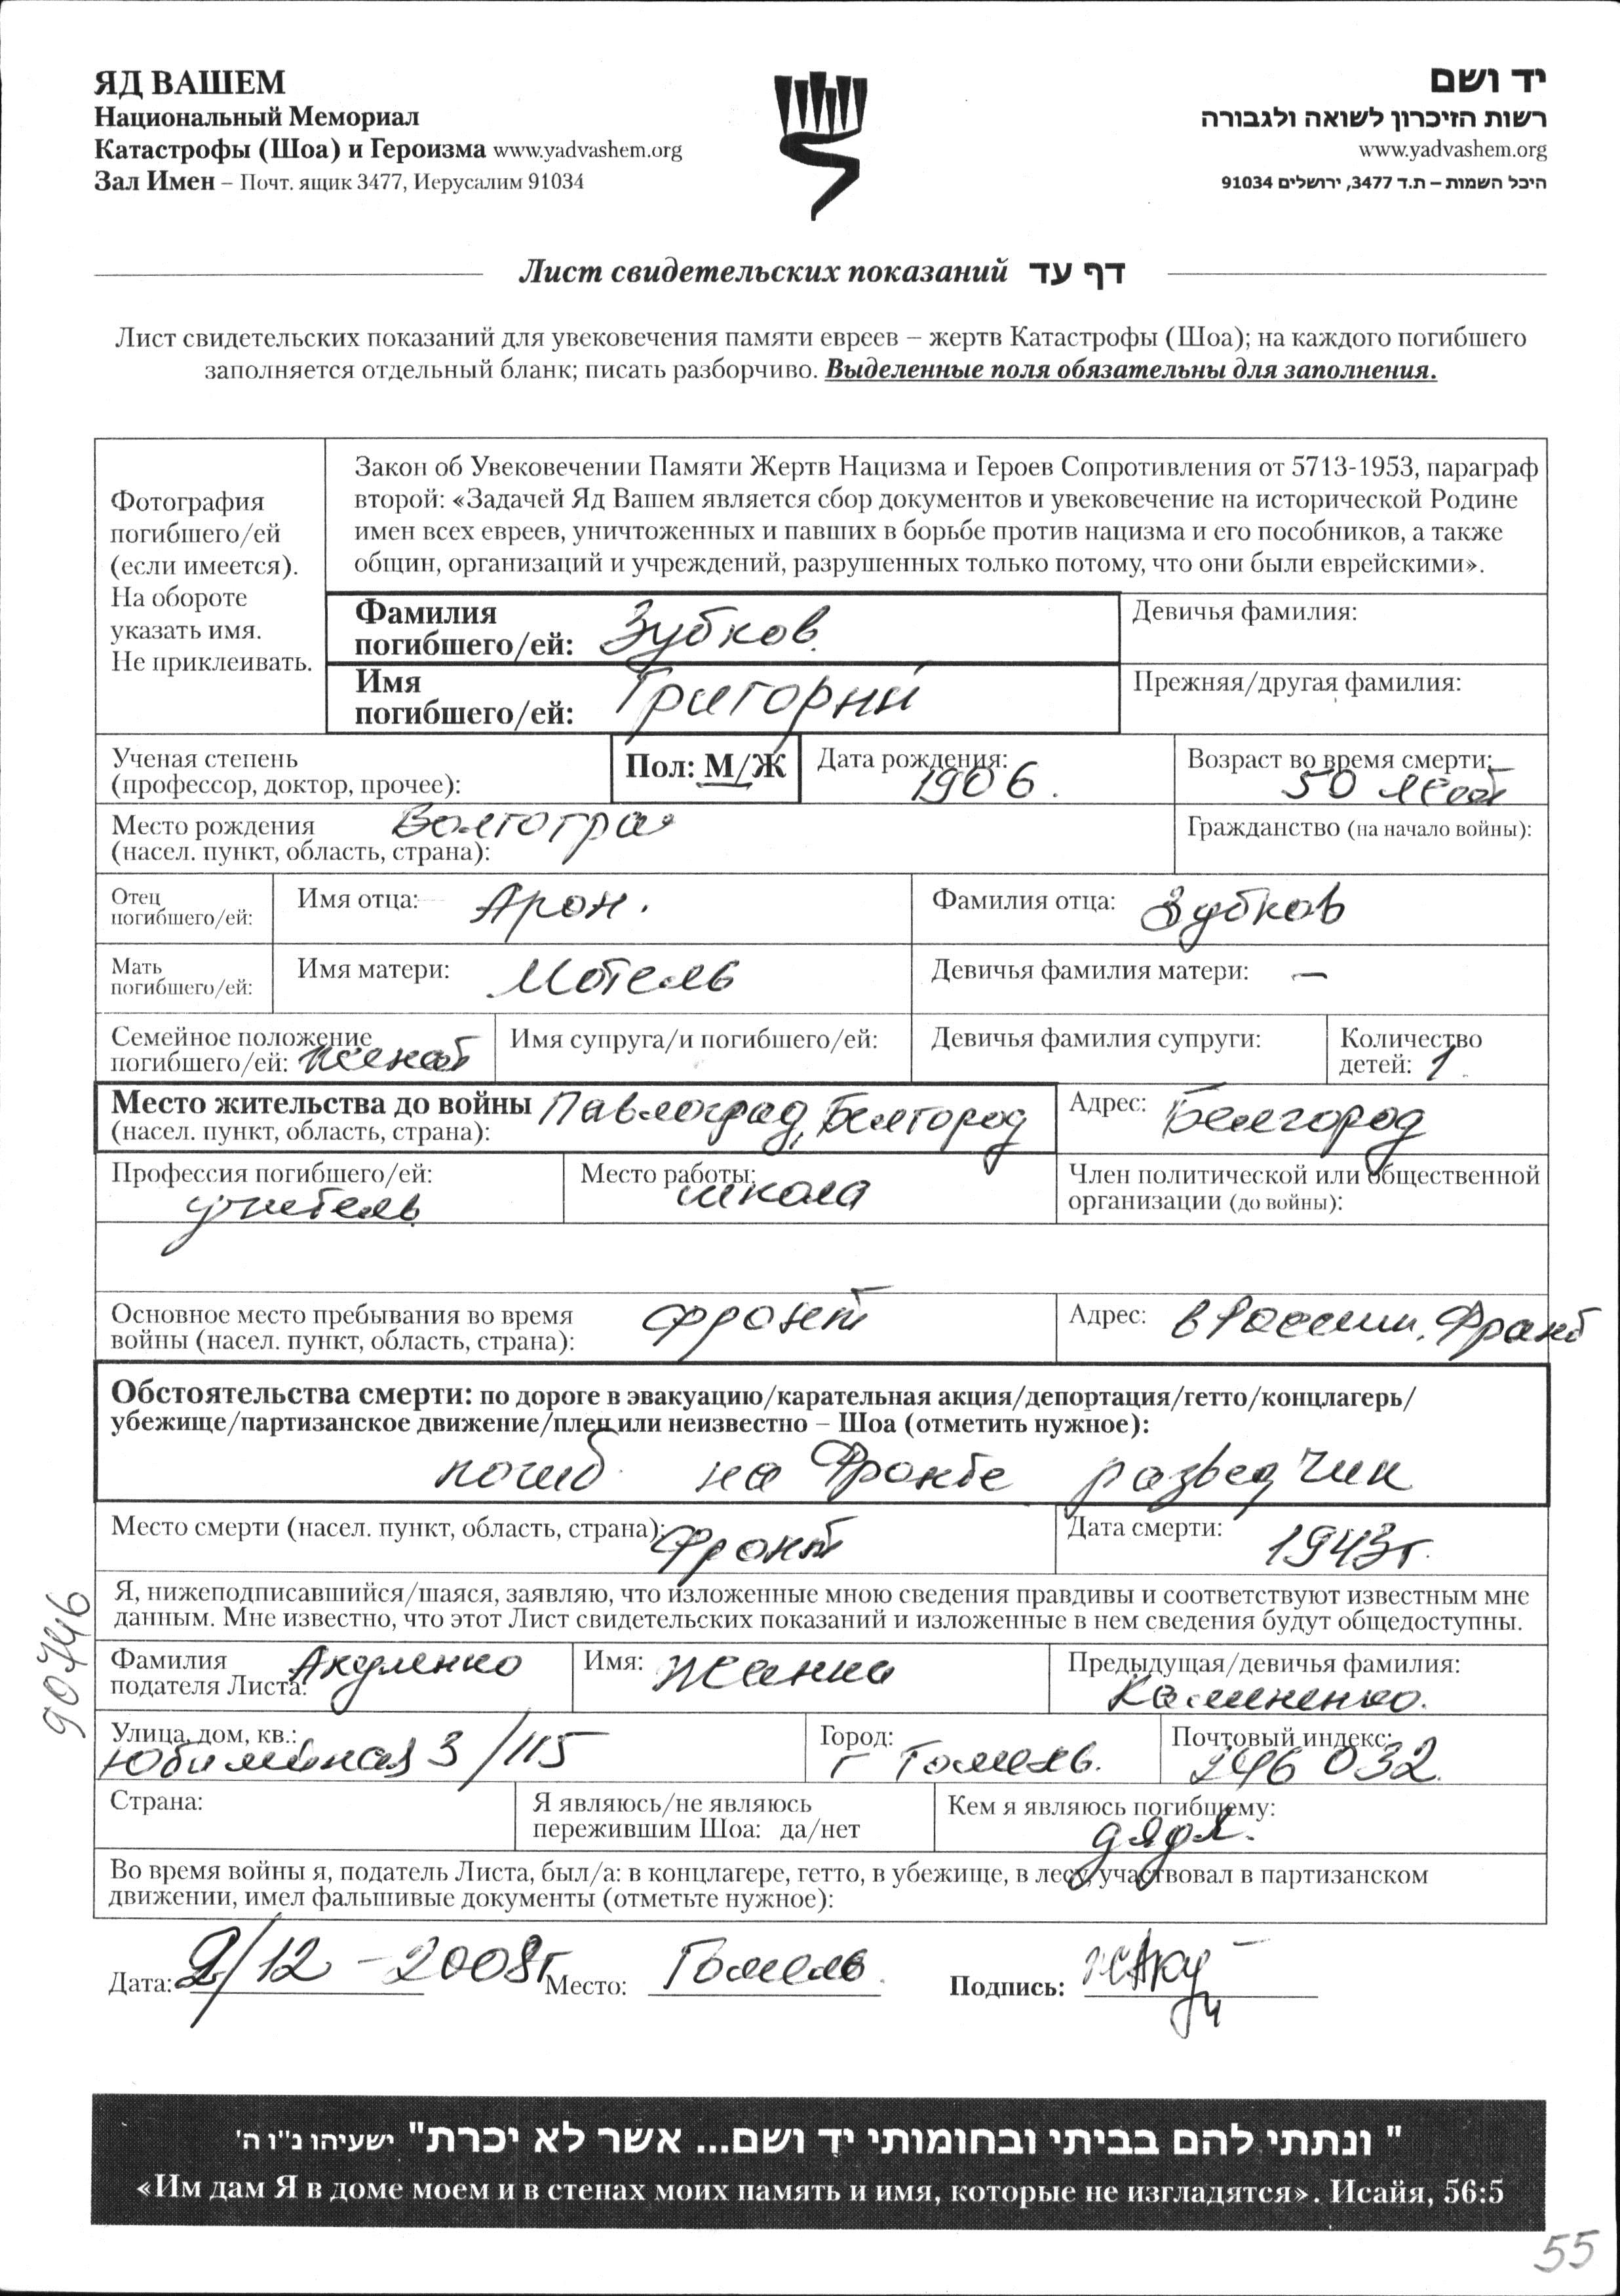 ЯД ВАШЕМ
Национальный Мемориал
Катастрофы (Шоа) и Героизма www.yadvashem.org
Зал Имен – Почт. ящик 3477, Иерусалим 91034
יד ושם
רשות הזיכרון לשואה ולגבורה
www.yadvashem.org
היכל השמות – ת.ד 3477, ירושלים 91034
Лист свидетельских показаний דף עד
Лист свидетельских показаний для увековечения памяти евреев – жертв Катастрофы (Шоа); на каждого погибшего
заполняется отдельный бланк; писать разборчиво. Выделенные поля обязательны для заполнения.
Фотография
погибшего/ей
(если имеется).
На обороте
указать имя.
Не приклеивать.
Закон об Увековечении Памяти Жертв Нацизма и Героев Сопротивления от 5713-1953, параграф
второй: «Задачей Яд Вашем является сбор документов и увековечение на исторической Родине
имен всех евреев, уничтоженных и павших в борьбе против нацизма и его пособников, а также
общин, организаций и учреждений, разрушенных только потому, что они были еврейскими».
Фамилия
погибшего/ей: Зубков
Девичья фамилия:
Имя
погибшего/ей: Григорий
Прежняя/другая фамилия:
Ученая степень
(профессор, доктор, прочее):
Пол: М/Ж
Дата рождения: 1906.
Возраст во время смерти:
50 лет
Место рождения Волгоград
(насел. пункт, область, страна):
Гражданство (на начало войны):
Отец
погибшего/ей:
Имя отца: Арон.
Фамилия отца: Зубков
Мать
погибшего/ей:
Имя матери: Мотель
Девичья фамилия матери: —
Семейное положение
погибшего/ей: женат
Имя супруга/и погибшего/ей:
Девичья фамилия супруги:
Количество
детей: 1
Место жительства до войны Павлоград, Белгород
(насел. пункт, область, страна):
Адрес: Белгород
Профессия погибшего/ей:
учитель
Место работы:
школа
Член политической или общественной
организации (до войны):
Основное место пребывания во время
войны (насел. пункт, область, страна): фронт
Адрес: в России, Фронт
Обстоятельства смерти: по дороге в эвакуацию/карательная акция/депортация/гетто/концлагерь/
убежище/партизанское движение/плен или неизвестно – Шоа (отметить нужное):
погиб на Фронте разведчик
Место смерти (насел. пункт, область, страна): Фронт
Дата смерти: 1943г.
Я, нижеподписавшийся/шаяся, заявляю, что изложенные мною сведения правдивы и соответствуют известным мне
данным. Мне известно, что этот Лист свидетельских показаний и изложенные в нем сведения будут общедоступны.
Фамилия
подателя Листа: Акуленко
Имя: Жанна
Предыдущая/девичья фамилия:
Улица, дом, кв.:
Юбилейная 3/115
Город:
г Гомель.
Почтовый индекс:
246 032
Страна:
Я являюсь/не являюсь
пережившим Шоа: да/нет
Кем я являюсь погибшему:
дядя.
Во время войны я, податель Листа, был/а: в концлагере, гетто, в убежище, в лесу, участвовал в партизанском
движении, имел фальшивые документы (отметьте нужное):
Дата: 2/12 – 2008г Место: Гомель. Подпись:
" ונתתי להם בביתי ובחומותי יד ושם... אשר לא יכרת" ישעיהו נ"ו ה'
«Им дам Я в доме моем и в стенах моих память и имя, которые не изгладятся». Исайя, 56:5
55